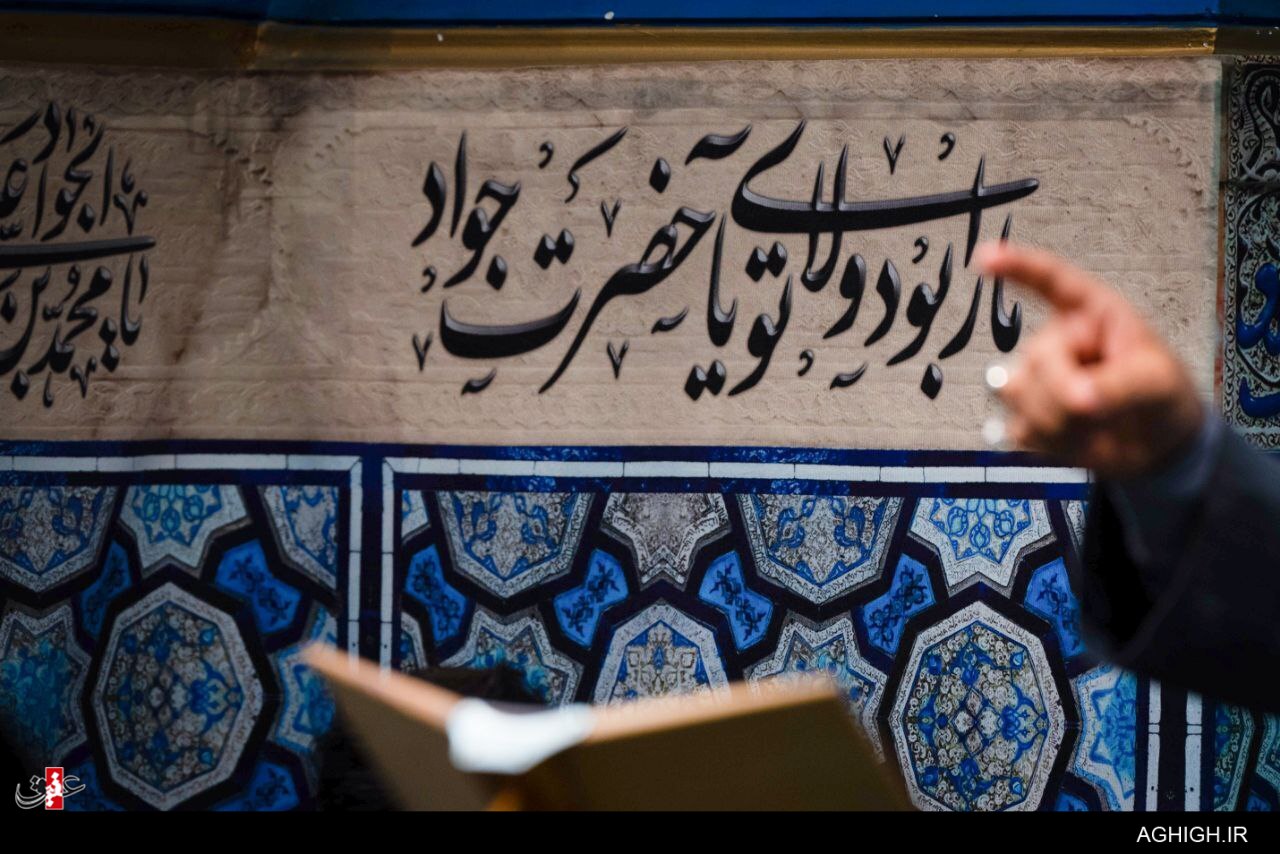 ما را بود ولای تو یا حضرت جواد
یا محمد بن
الجواد
عقیق
AGHIGH.IR